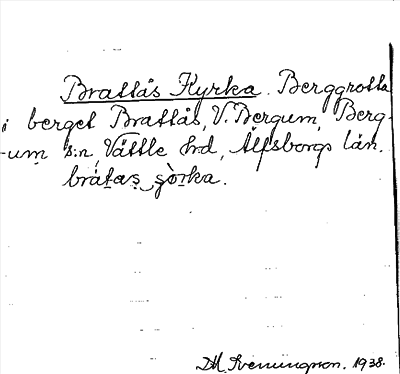 Brattås Kyrka. Berggrotta
i berget Brattås, V. Bergum, Berg-
-um s:n, Vättle hd, Älfsborgs län.
brátas̩ s̩òr̩ka.
1938.